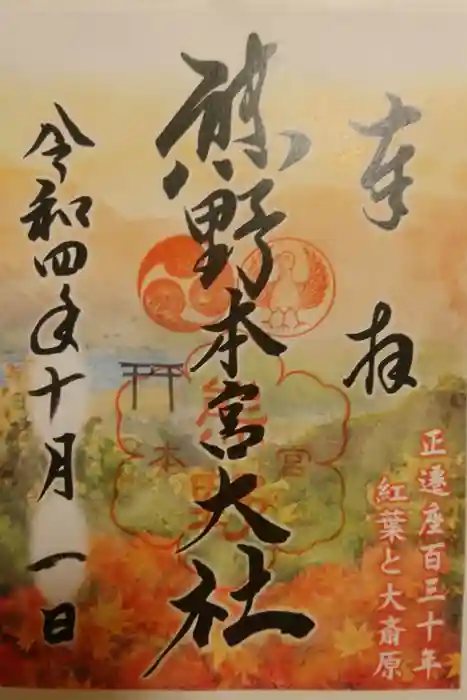 奉拝
正遷座百三十年
紅葉と大斎原
熊野本宮大社
熊野
本宮
令和四年十月一日